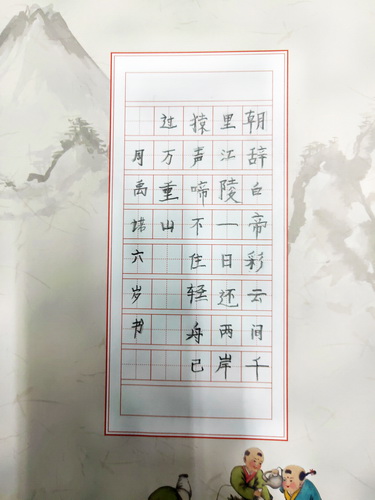 朝辞白帝彩云间千
里江陵一日还两岸
猿声啼不住轻舟已
过万重山
周禹六岁书